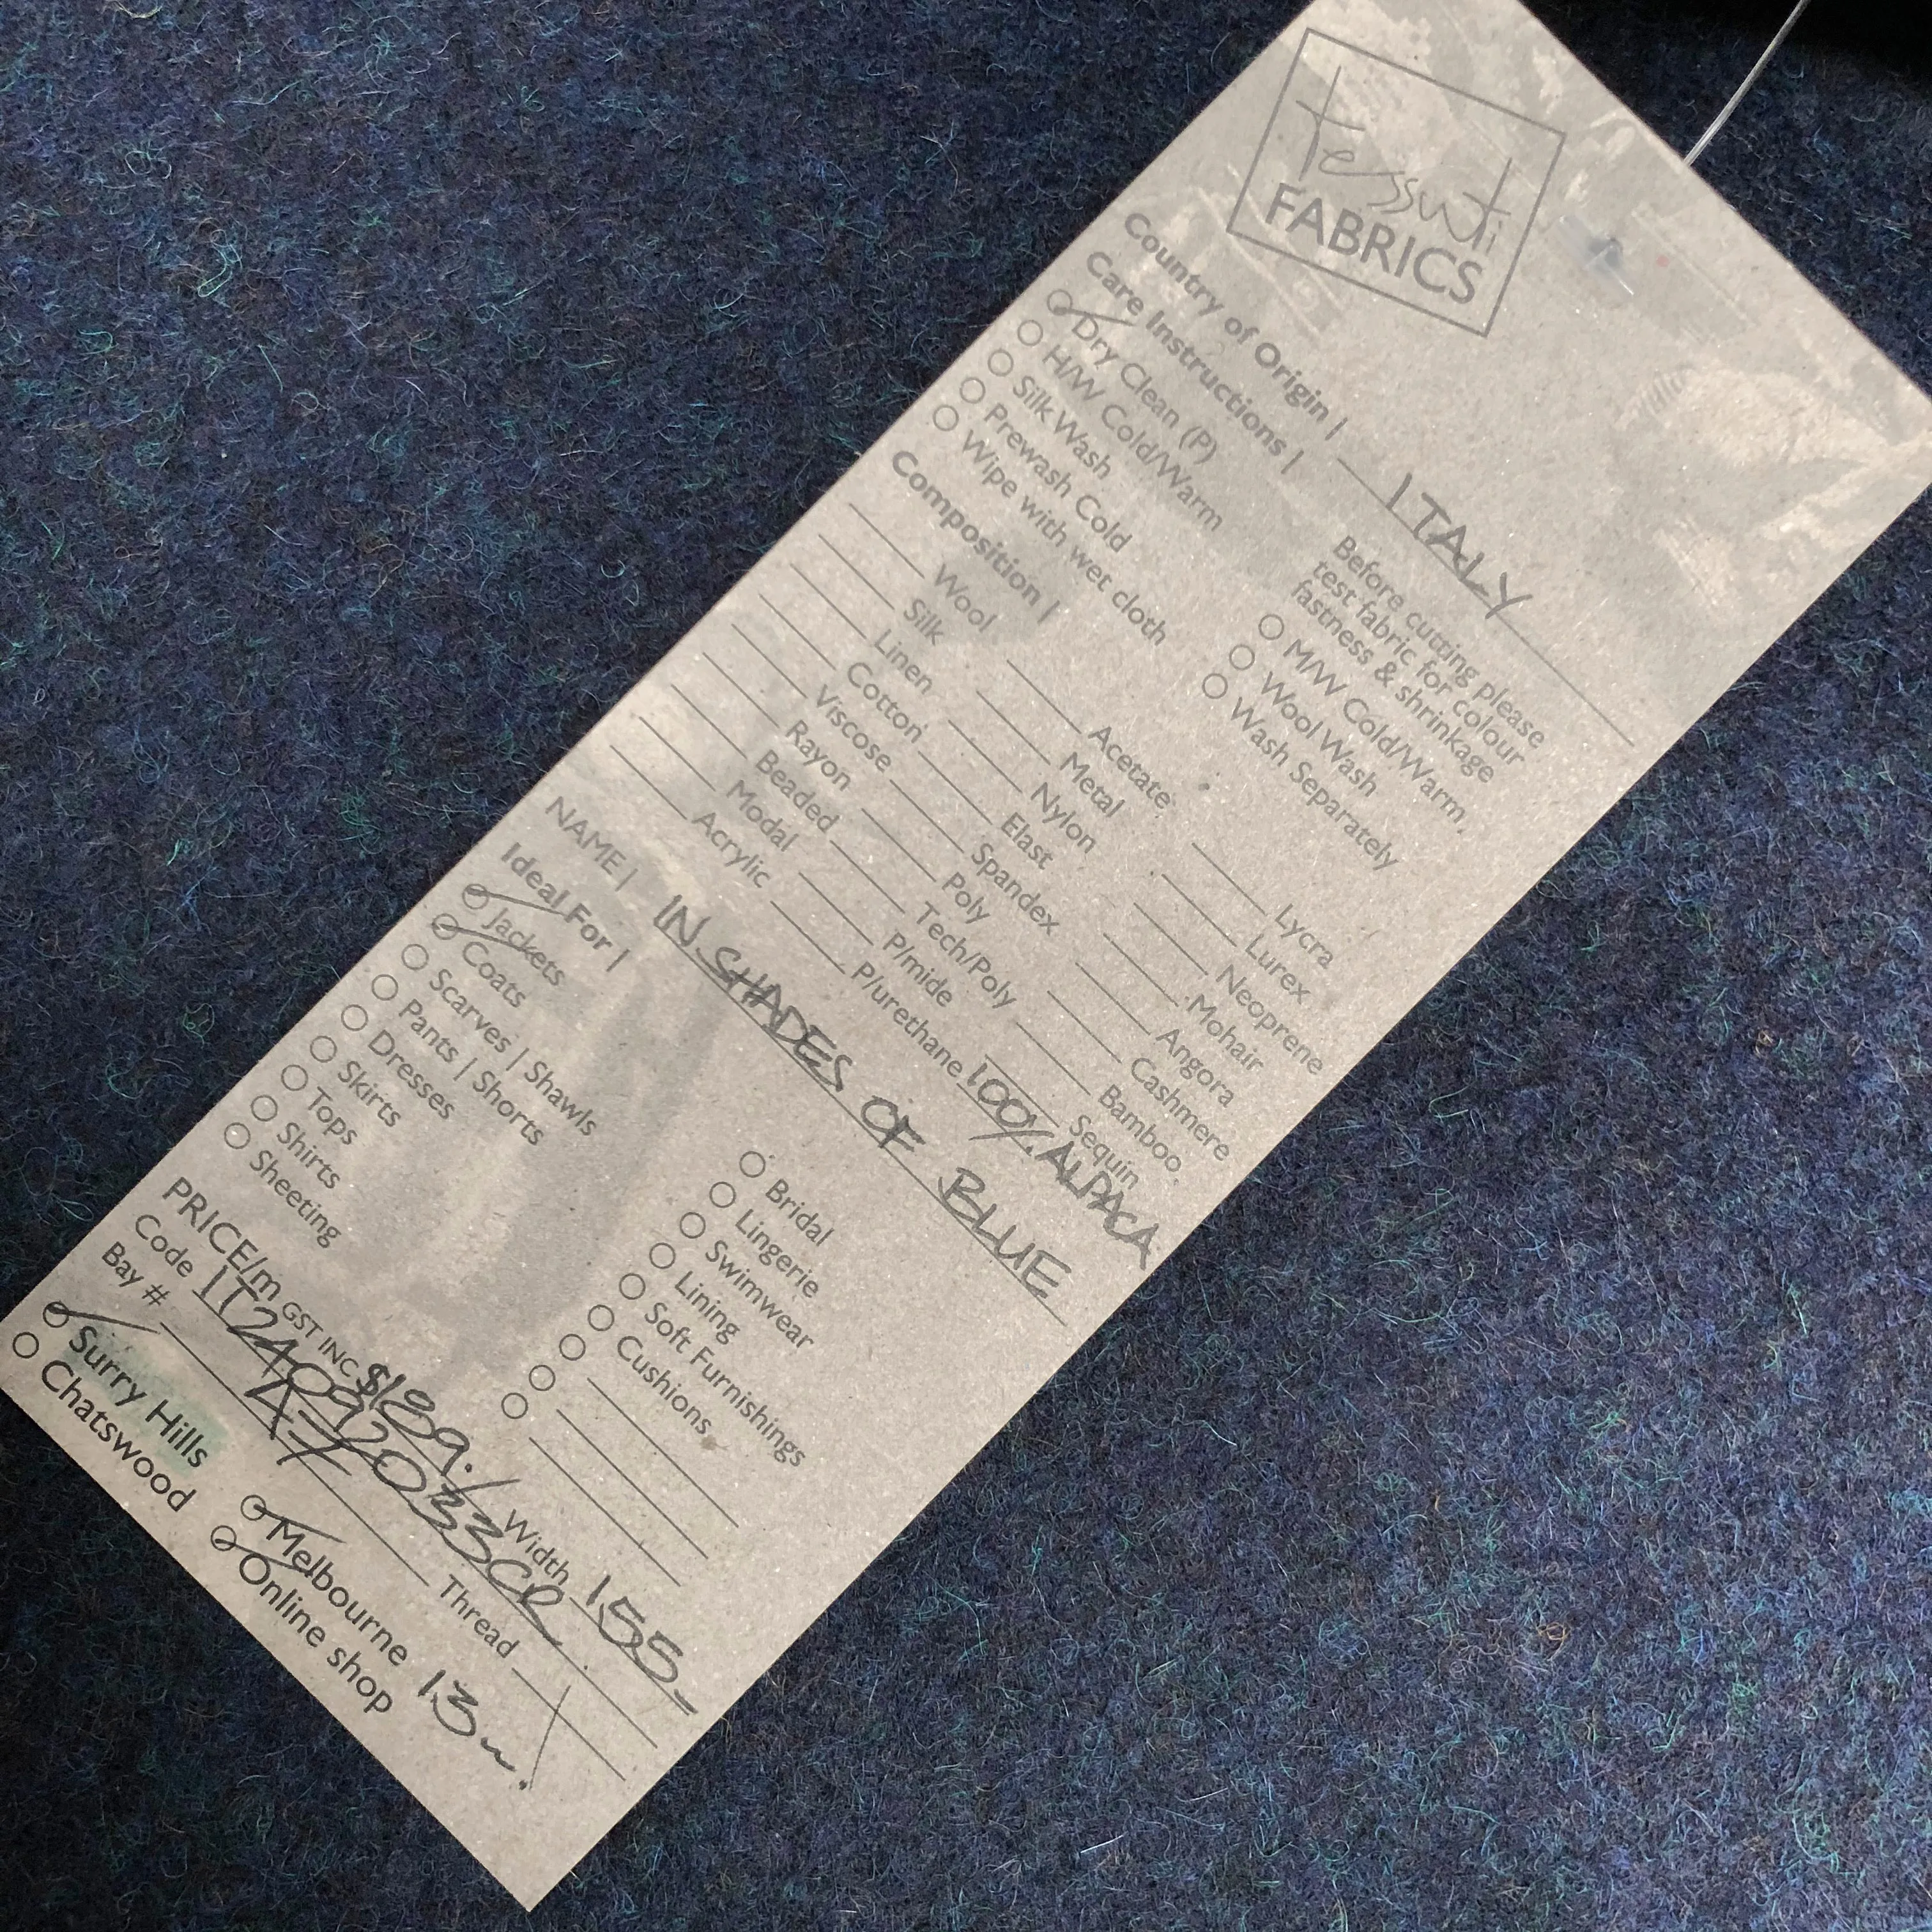 tessuti
FABRICS
Country of Origin | ITALY
Care Instructions |
Before cutting please
test fabric for colour
fastness & shrinkage
Dry Clean (P)
H/W Cold/Warm
Silk Wash
Prewash Cold
Wipe with wet cloth
M/W Cold/Warm
Wool Wash
Wash Separately
Composition |
Wool
Silk
Linen
Cotton
Viscose
Rayon
Beaded
Modal
Acrylic
Acetate
Metal
Nylon
Elast
Spandex
Poly
Tech/Poly
P/mide
P/urethane
Lycra
Lurex
Neoprene
Mohair
Angora
Cashmere
Bamboo
Sequin
100% ALPACA
NAME | IN SHADES OF BLUE
Ideal For |
Jackets
Coats
Scarves | Shawls
Pants | Shorts
Dresses
Skirts
Tops
Shirts
Sheeting
Bridal
Lingerie
Swimwear
Lining
Soft Furnishings
Cushions
PRICE/m GST INC. $189./ Width 155
Code IT24092033CR
Bay # A7 Thread
Surry Hills
Chatswood
Melbourne
Online shop
13m!